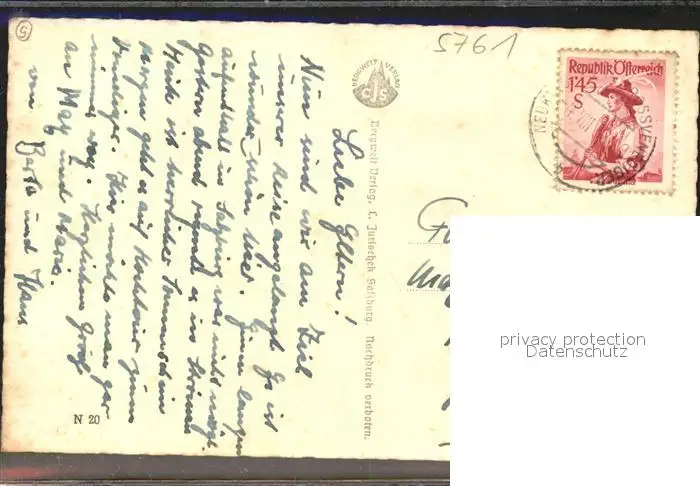 5761
9
Republik Österreich
1'45
S
BERGWELT VERLAG
CJS
Bergwelt Verlag, C. Jurischek Salzburg. Nachdruck verboten.
Liebe Eltern!
Nun sind wir am Ziel
unserer Reise angelangt. Es ist
wunderschön hier. Einen langen
Aufenthalt in Salzburg war nicht mögl.
Gestern abend regnete es in Strömen
Heute ist herrlicher Sonnenschein
Morgen geht es auf
Hier möchte man gar
nimmer weg. Herzlichen Gruß
an Mag und Maria.
von Berta und Hans
N 20
privacy protection
Datenschutz